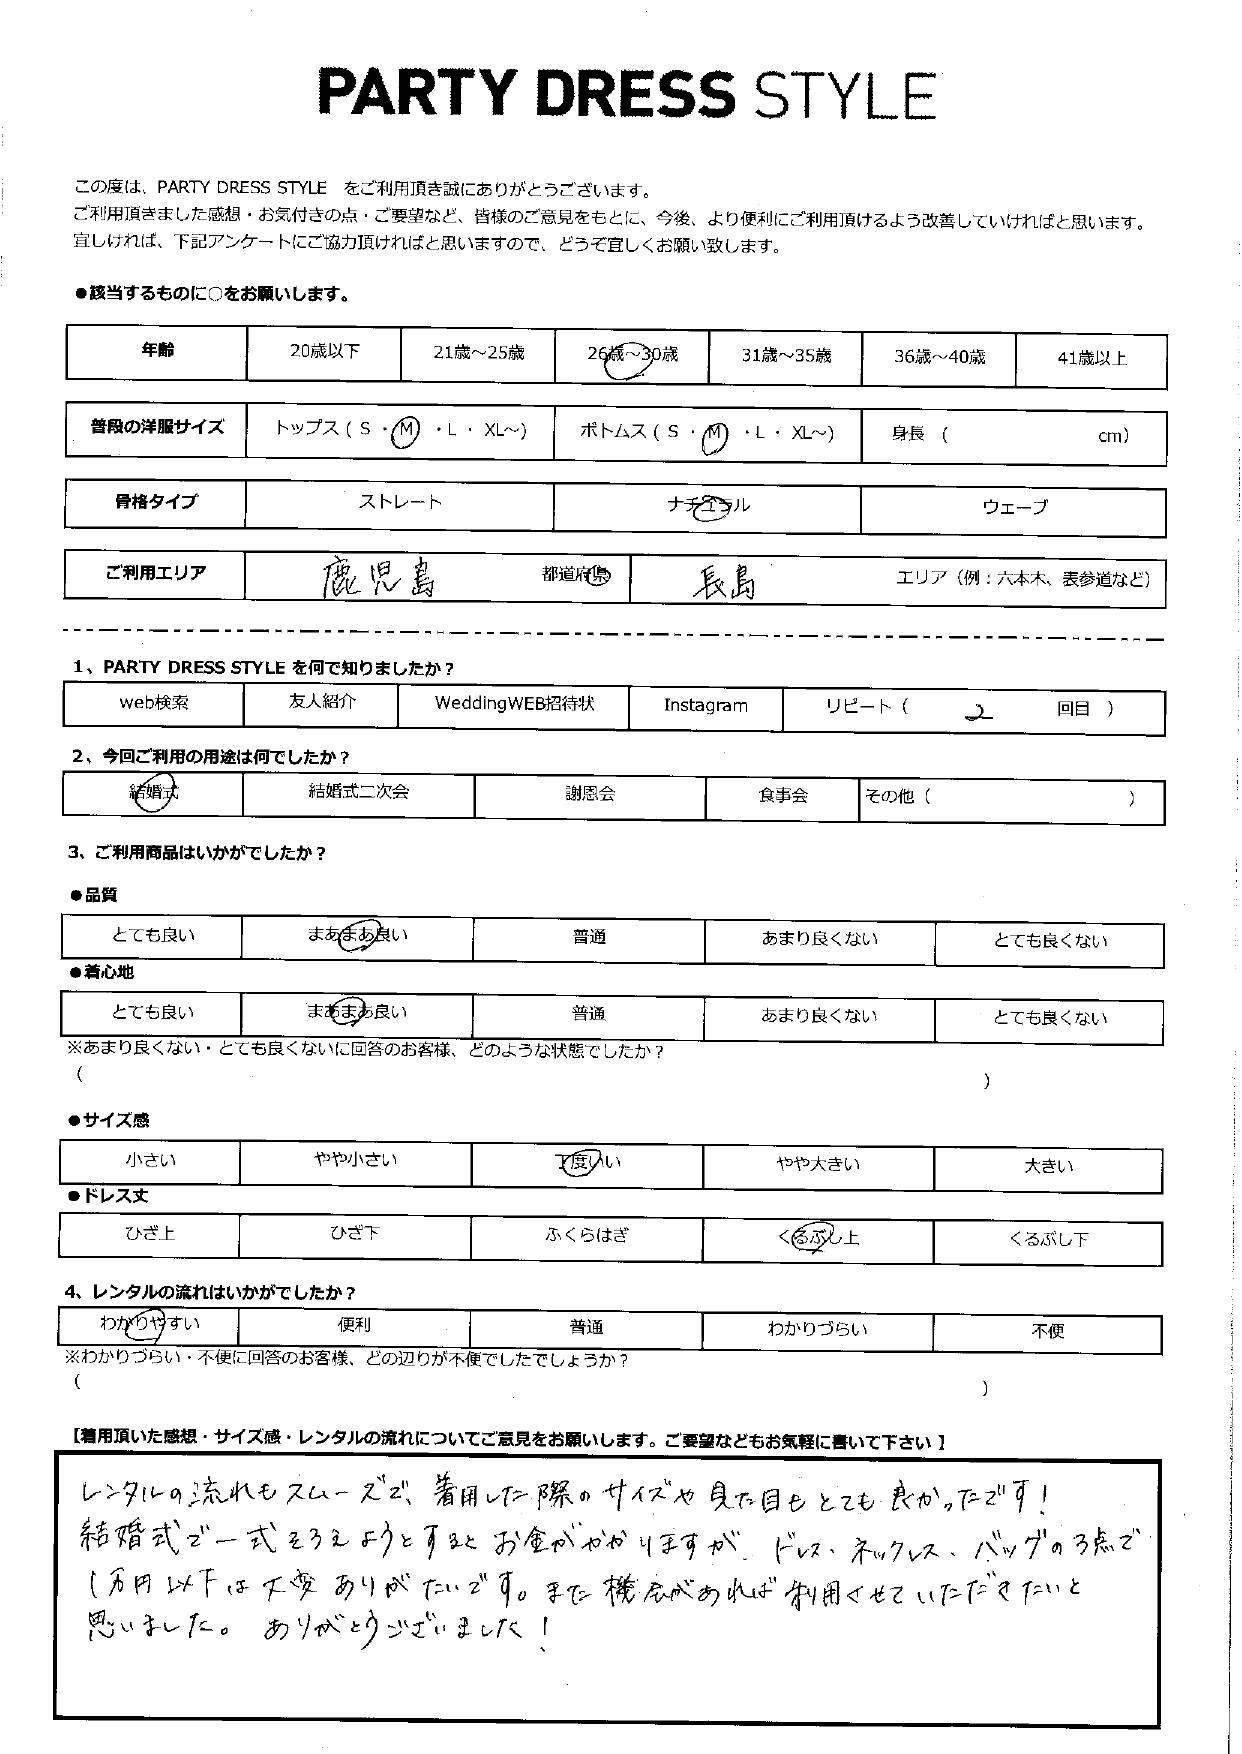 PARTY DRESS STYLE
この度は、PARTY DRESS STYLE をご利用頂き誠にありがとうございます。
ご利用頂きました感想・お気付きの点・ご要望など、皆様のご意見をもとに、今後、より便利にご利用頂けるよう改善していければと思います。
宜しければ、下記アンケートにご協力頂ければと思いますので、どうぞ宜しくお願い致します。
●該当するものに○をお願いします。
年齢 20歳以下 21歳～25歳 26歳～30歳 31歳～35歳 36歳～40歳 41歳以上
普段の洋服サイズ トップス ( S ・ M ・ L ・ XL～) ボトムス ( S ・ M ・ L ・ XL～) 身長 ( cm)
骨格タイプ ストレート ナチュラル ウェーブ
ご利用エリア 鹿児島 都道府県 長島 エリア（例：六本木、表参道など）
1、PARTY DRESS STYLE を何で知りましたか？
web検索 友人紹介 WeddingWEB招待状 Instagram リピート（ 2 回目 ）
2、今回ご利用の用途は何でしたか？
結婚式 結婚式二次会 謝恩会 食事会 その他（ ）
3、ご利用商品はいかがでしたか？
●品質
とても良い まあまあ良い 普通 あまり良くない とても良くない
●着心地
とても良い まあまあ良い 普通 あまり良くない とても良くない
※あまり良くない・とても良くないに回答のお客様、どのような状態でしたか？
（ ）
●サイズ感
小さい やや小さい 丁度いい やや大きい 大きい
●ドレス丈
ひざ上 ひざ下 ふくらはぎ くるぶし上 くるぶし下
4、レンタルの流れはいかがでしたか？
わかりやすい 便利 普通 わかりづらい 不便
※わかりづらい・不便に回答のお客様、どの辺りが不便でしたでしょうか？
（ ）
【着用頂いた感想・サイズ感・レンタルの流れについてご意見をお願いします。ご要望などもお気軽に書いて下さい】
レンタルの流れもスムーズで、着用した際のサイズや見た目もとても良かったです！
結婚式で一式そろえようとするとお金がかかりますが、ドレス・ネックレス・バッグの3点で
1万円以下は大変ありがたいです。また機会があれば利用させていただきたいと
思いました。ありがとうございました！